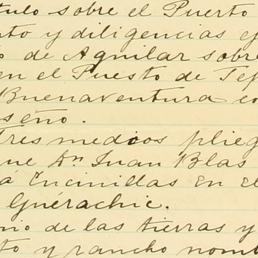 tulo sobre el Puerto
to y diligencias ef
o de Aguilar sobre
en el Puesto de Tep
Buenaventura co
seño.
Tres medios plieg
que Dn Juan Blas
á Encinillas en el
Guerachic.
nio de las tierras y
to y rancho nomb